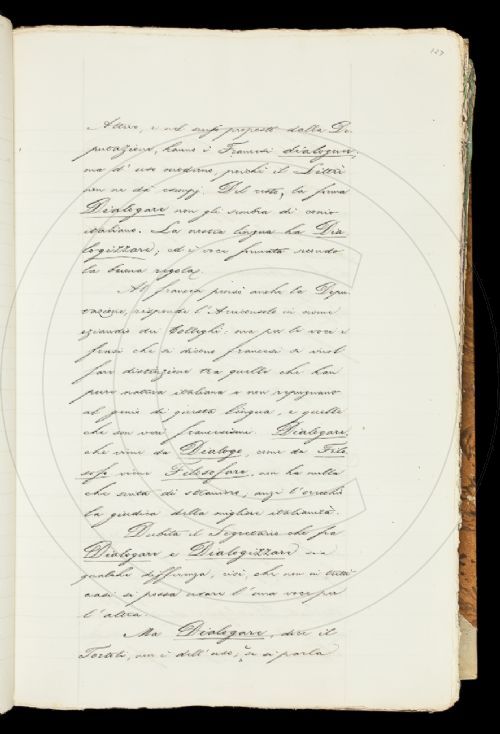 127
Attivo, e nel senso proposto dalla De
putazione, hanno i Francesi dialoguer,
ma d'uso moderno, perchè il Littré
non ne dà esempj. Del resto, la forma
Dialogare non gli sembra di conio
italiano. La nostra lingua ha Dia
logizzare; ed è voce formata secondo
la buona regola.
Al francese pensò anche la Depu
tazione, risponde l'Arciconsolo in nome
eziandio dei Colleghi: ma per le voci e
frasi che si dicono francesi si vuol
fare distinzione tra quelle che han
pure natura italiana e non repugnano
al genio di questa lingua, e quelle
che son veri francesismi. Dialogare,
che viene da Dialogo, come da Filo
sofo viene Filosofare, non ha nulla
che senta di straniero, anzi l'orecchio
la giudica della migliore italianità.
Dubita il Segretario che fra
Dialogare e Dialogizzare sia
qualche differenza, cioè, che non in tutti
casi si possa usare l'una voce per
l'altra.
Ma Dialogare, dice il
Tortoli, non è dell'uso; se si parla